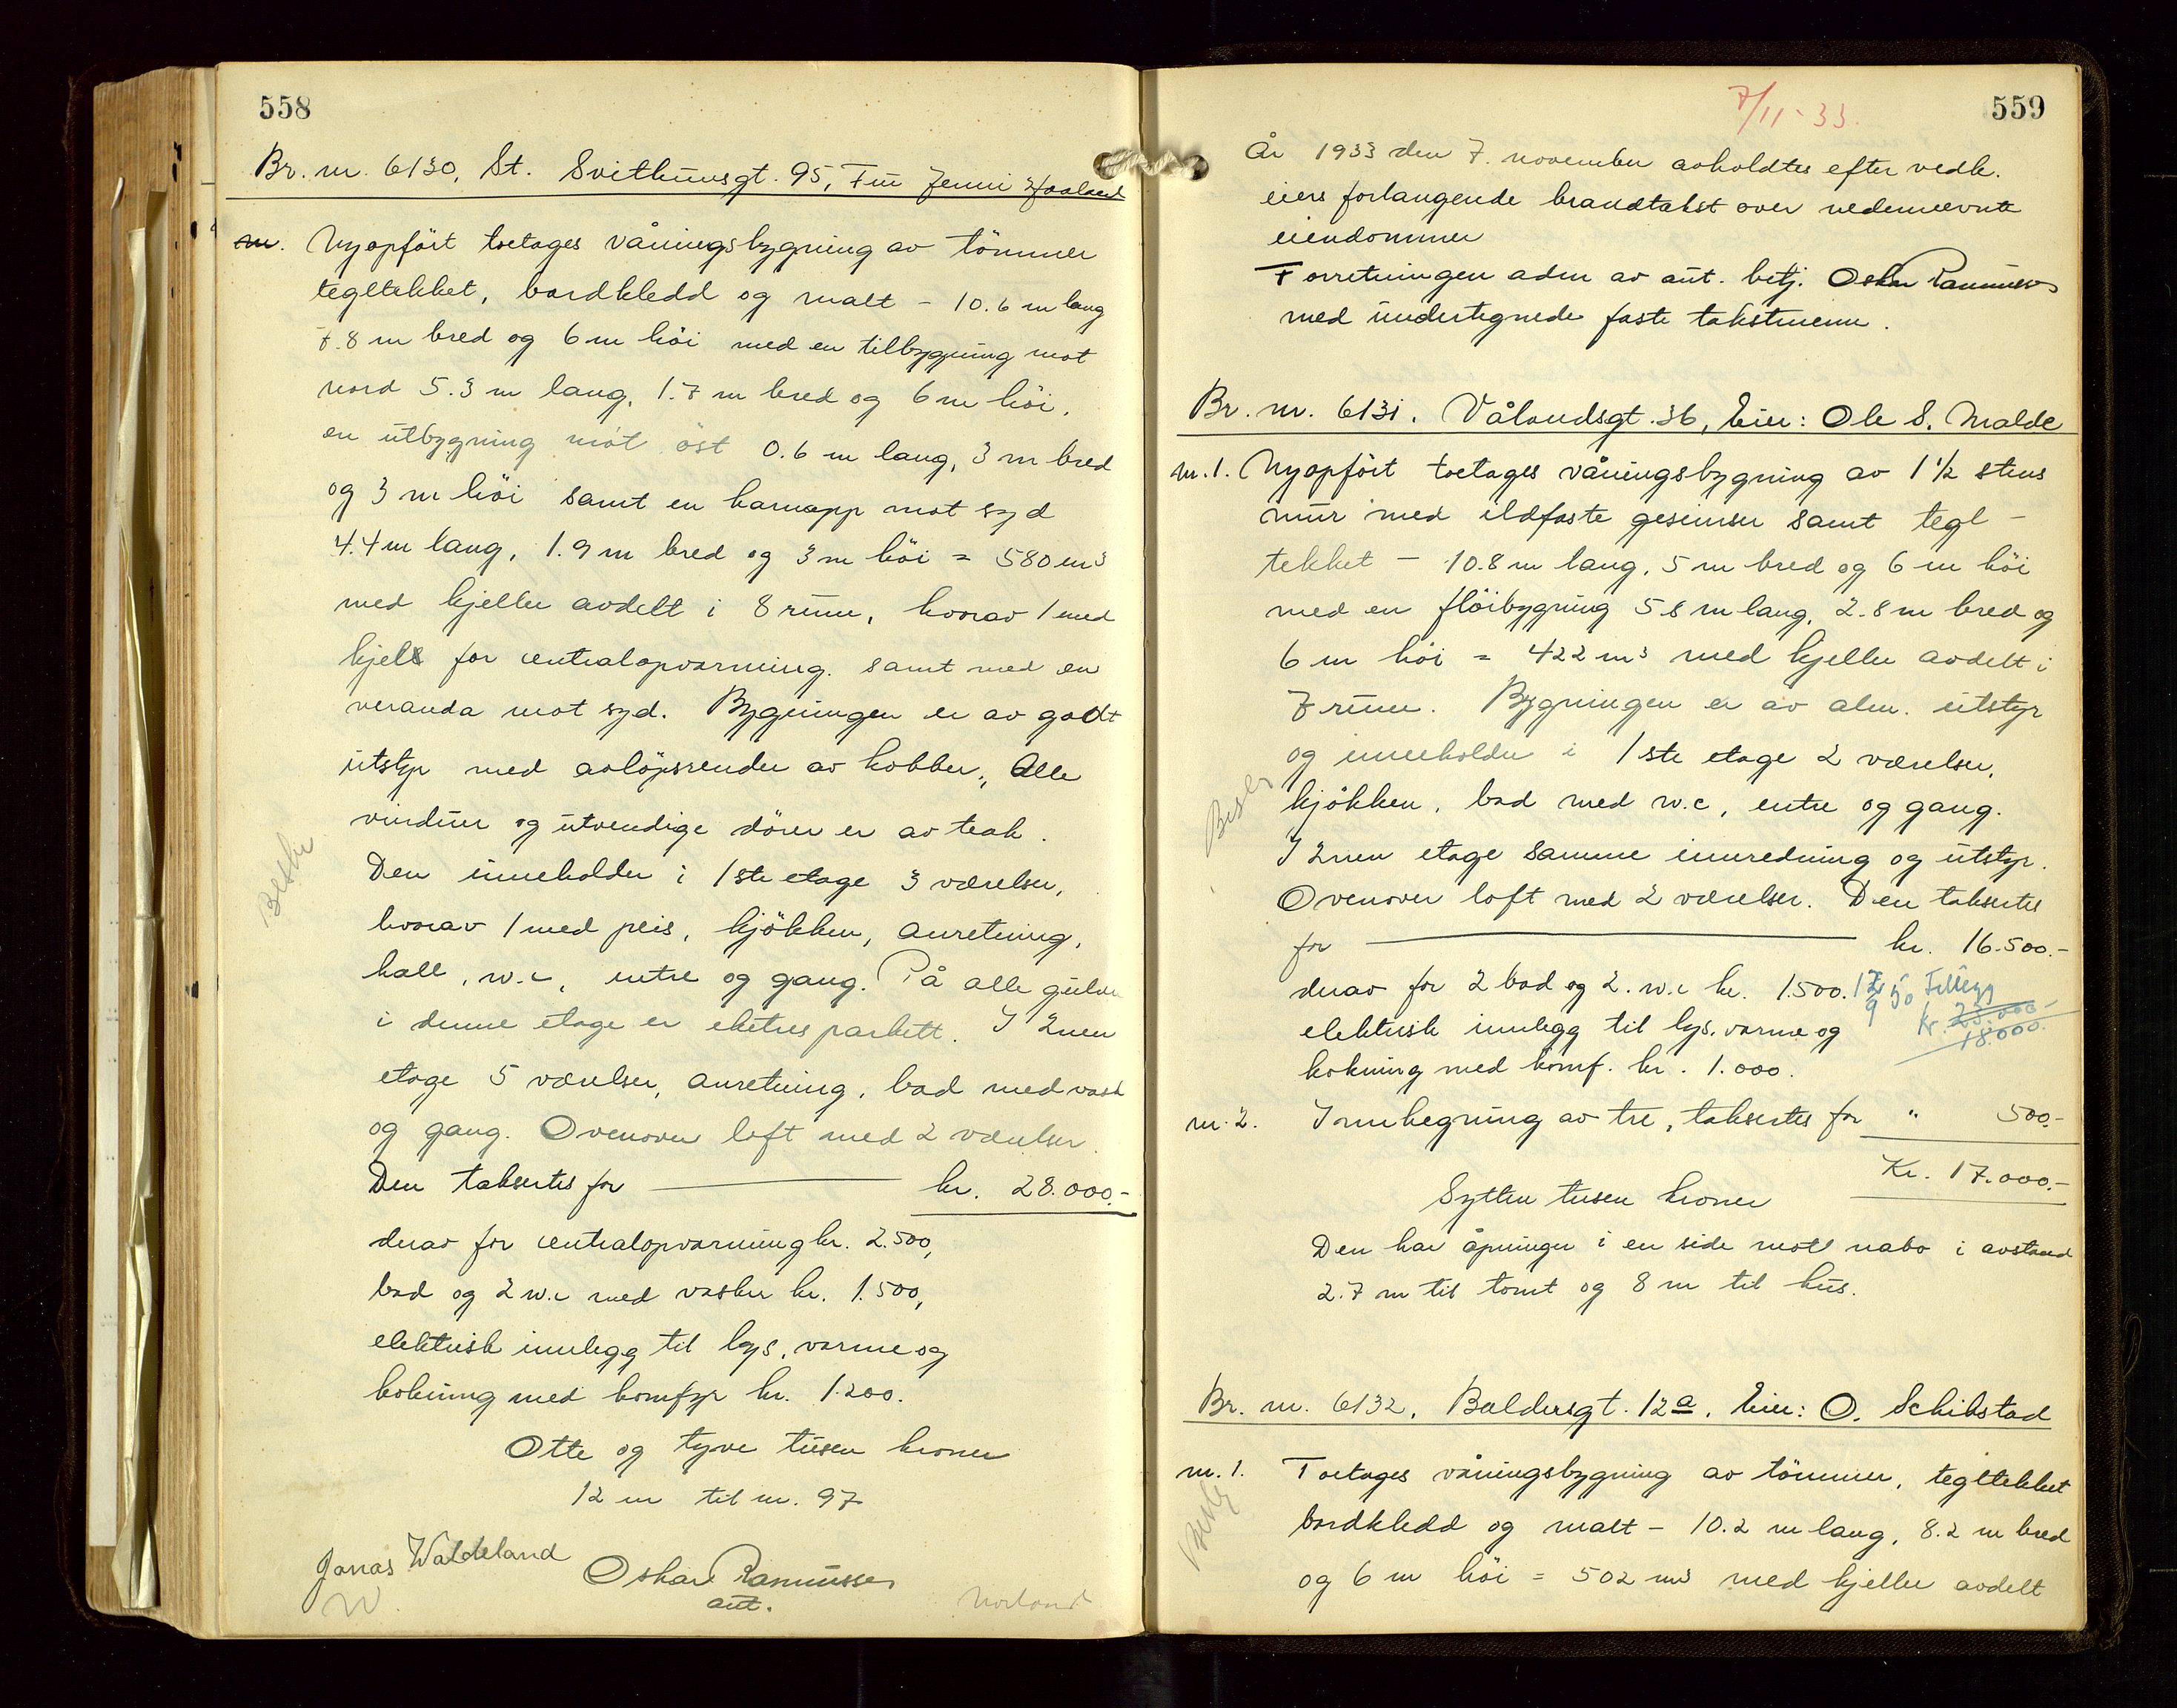 558
Br. nr. 6130, St. Svithunsgt. 95, Fru Jenni Haaland
nr. Nyopfört toetages våningsbygning av tömmer
tegltekket, bordkledd og malt – 10.6 m lang
7.8 m bred og 6 m höi med en tilbygning mot
nord 5.3 m lang, 1.7 m bred og 6 m höi,
en utbygning mot öst 0.6 m lang, 3 m bred
og 3 m höi samt en karnapp mot syd
4.4 m lang, 1.9 m bred og 3 m höi = 580 m³
med kjeller avdelt i 8 rum, hvorav 1 med
kjel for centralopvarming. samt med en
veranda mot syd. Bygningen er av godt
utstyr med avlöpsrender av kobber, Alle
vinduer og utvendige dörer er av teak.
Den inneholder i 1ste etage 3 værelser,
hvorav 1 med peis, kjökken, anretning,
hall, w.c, entre og gang. På alle gulve
i denne etage er eketres parkett. I 2nen
etage 5 værelser, anretning, bad med vask
og gang. Ovenover loft med 2 værelser
Den taksertes for — kr. 28.000.-
derav for centralopvarming kr. 2.500,
bad og 2 w.c med vasker kr. 1.500,
elektrisk innlegg til lys, varme og
kokning med komfyr kr. 1.200.
Otte og tyve tusen kroner
12 m til nr. 97
Jonas Waldeland
Oskar Rasmussen
aut.
W
Norland
Beskr
559
7/11-33.
År 1933 den 7. november avholdtes efter vedk.
eiers forlangende brandtakst over nedennevnte
eiendommer
Forretningen adm av aut. betj. Oskar Rasmussen
med undertegnede faste takstmenn.
Br. nr. 6131. Vålandsgt. 36, Eier: Ole S. Malde
nr. 1. Nyopfört toetages våningsbygning av 1 ½ stens
mur med ildfaste gesimser samt tegl-
tekket – 10.8 m lang, 5 m bred og 6 m höi
med en flöibygning 5.8 m lang, 2.8 m bred og
6 m höi = 422 m³ med kjeller avdelt i
7 rum. Bygningen er av alm. utstyr
og inneholder i 1ste etage 2 værelser,
kjökken, bad med w.c, entre og gang.
I 2nen etage samme innredning og utstyr.
Ovenover loft med 2 værelser. Den taksertes
for — kr. 16.500.-
derav for 2 bad og 2. w.c kr. 1.500.
Tillegg
kr. 23.000
18.000.
elektrisk innlegg til lys, varme og
kokning med komf. kr. 1.000.
nr. 2. Innhegning av tre, taksertes for " 500.-
Kr. 17.000.-
Sytten tusen kroner
Den har åpninger i en side mot nabo i avstand
2.7 m til tomt og 8 m til hus.
Br. nr. 6132. Baldersgt. 12a. Eier: O. Schibstad
nr. 1. Toetages våningsbygning av tömmer, tegltekket
bordkledd og malt – 10.2 m lang, 8.2 m bred
og 6 m höi = 502 m³ med kjeller avdelt